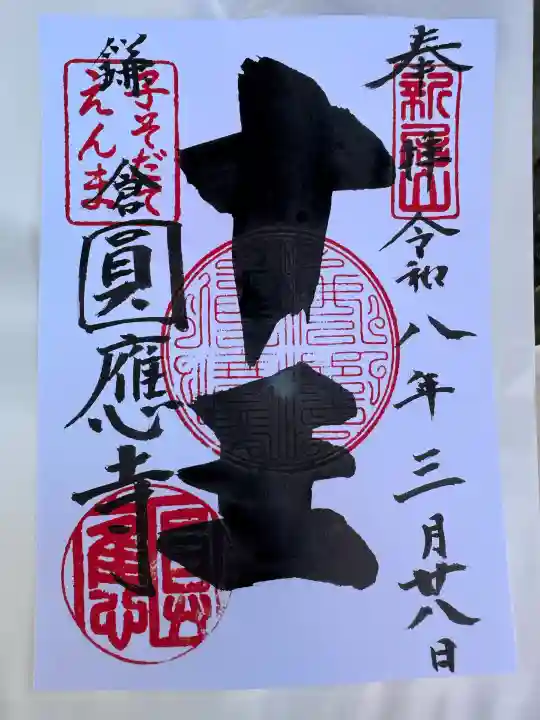 奉拝 令和八年三月廿八日
新居山
十王
鎌倉 圓應寺
子そだて
えんま
圓應